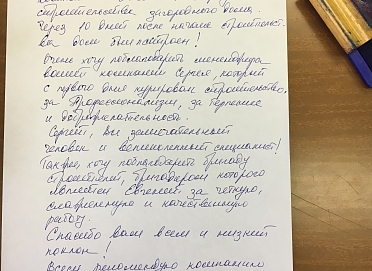 строительством загородного дома.
Через 10 дней после начала строительст-
ва дом был построен!
Очень хочу поблагодарить менеджера
вашей компании Сергея, который
с первого дня курировал строительство,
за профессионализм, за терпение
и доброжелательность.
Сергей, Вы замечательный
человек и великолепный специалист!
Также, хочу поблагодарить бригаду
строителей, бригадиром которого
является Евгений за чёткую,
слаженную и качественную
работу.
Спасибо вам всем и низкий
поклон!
Всем рекомендую компанию